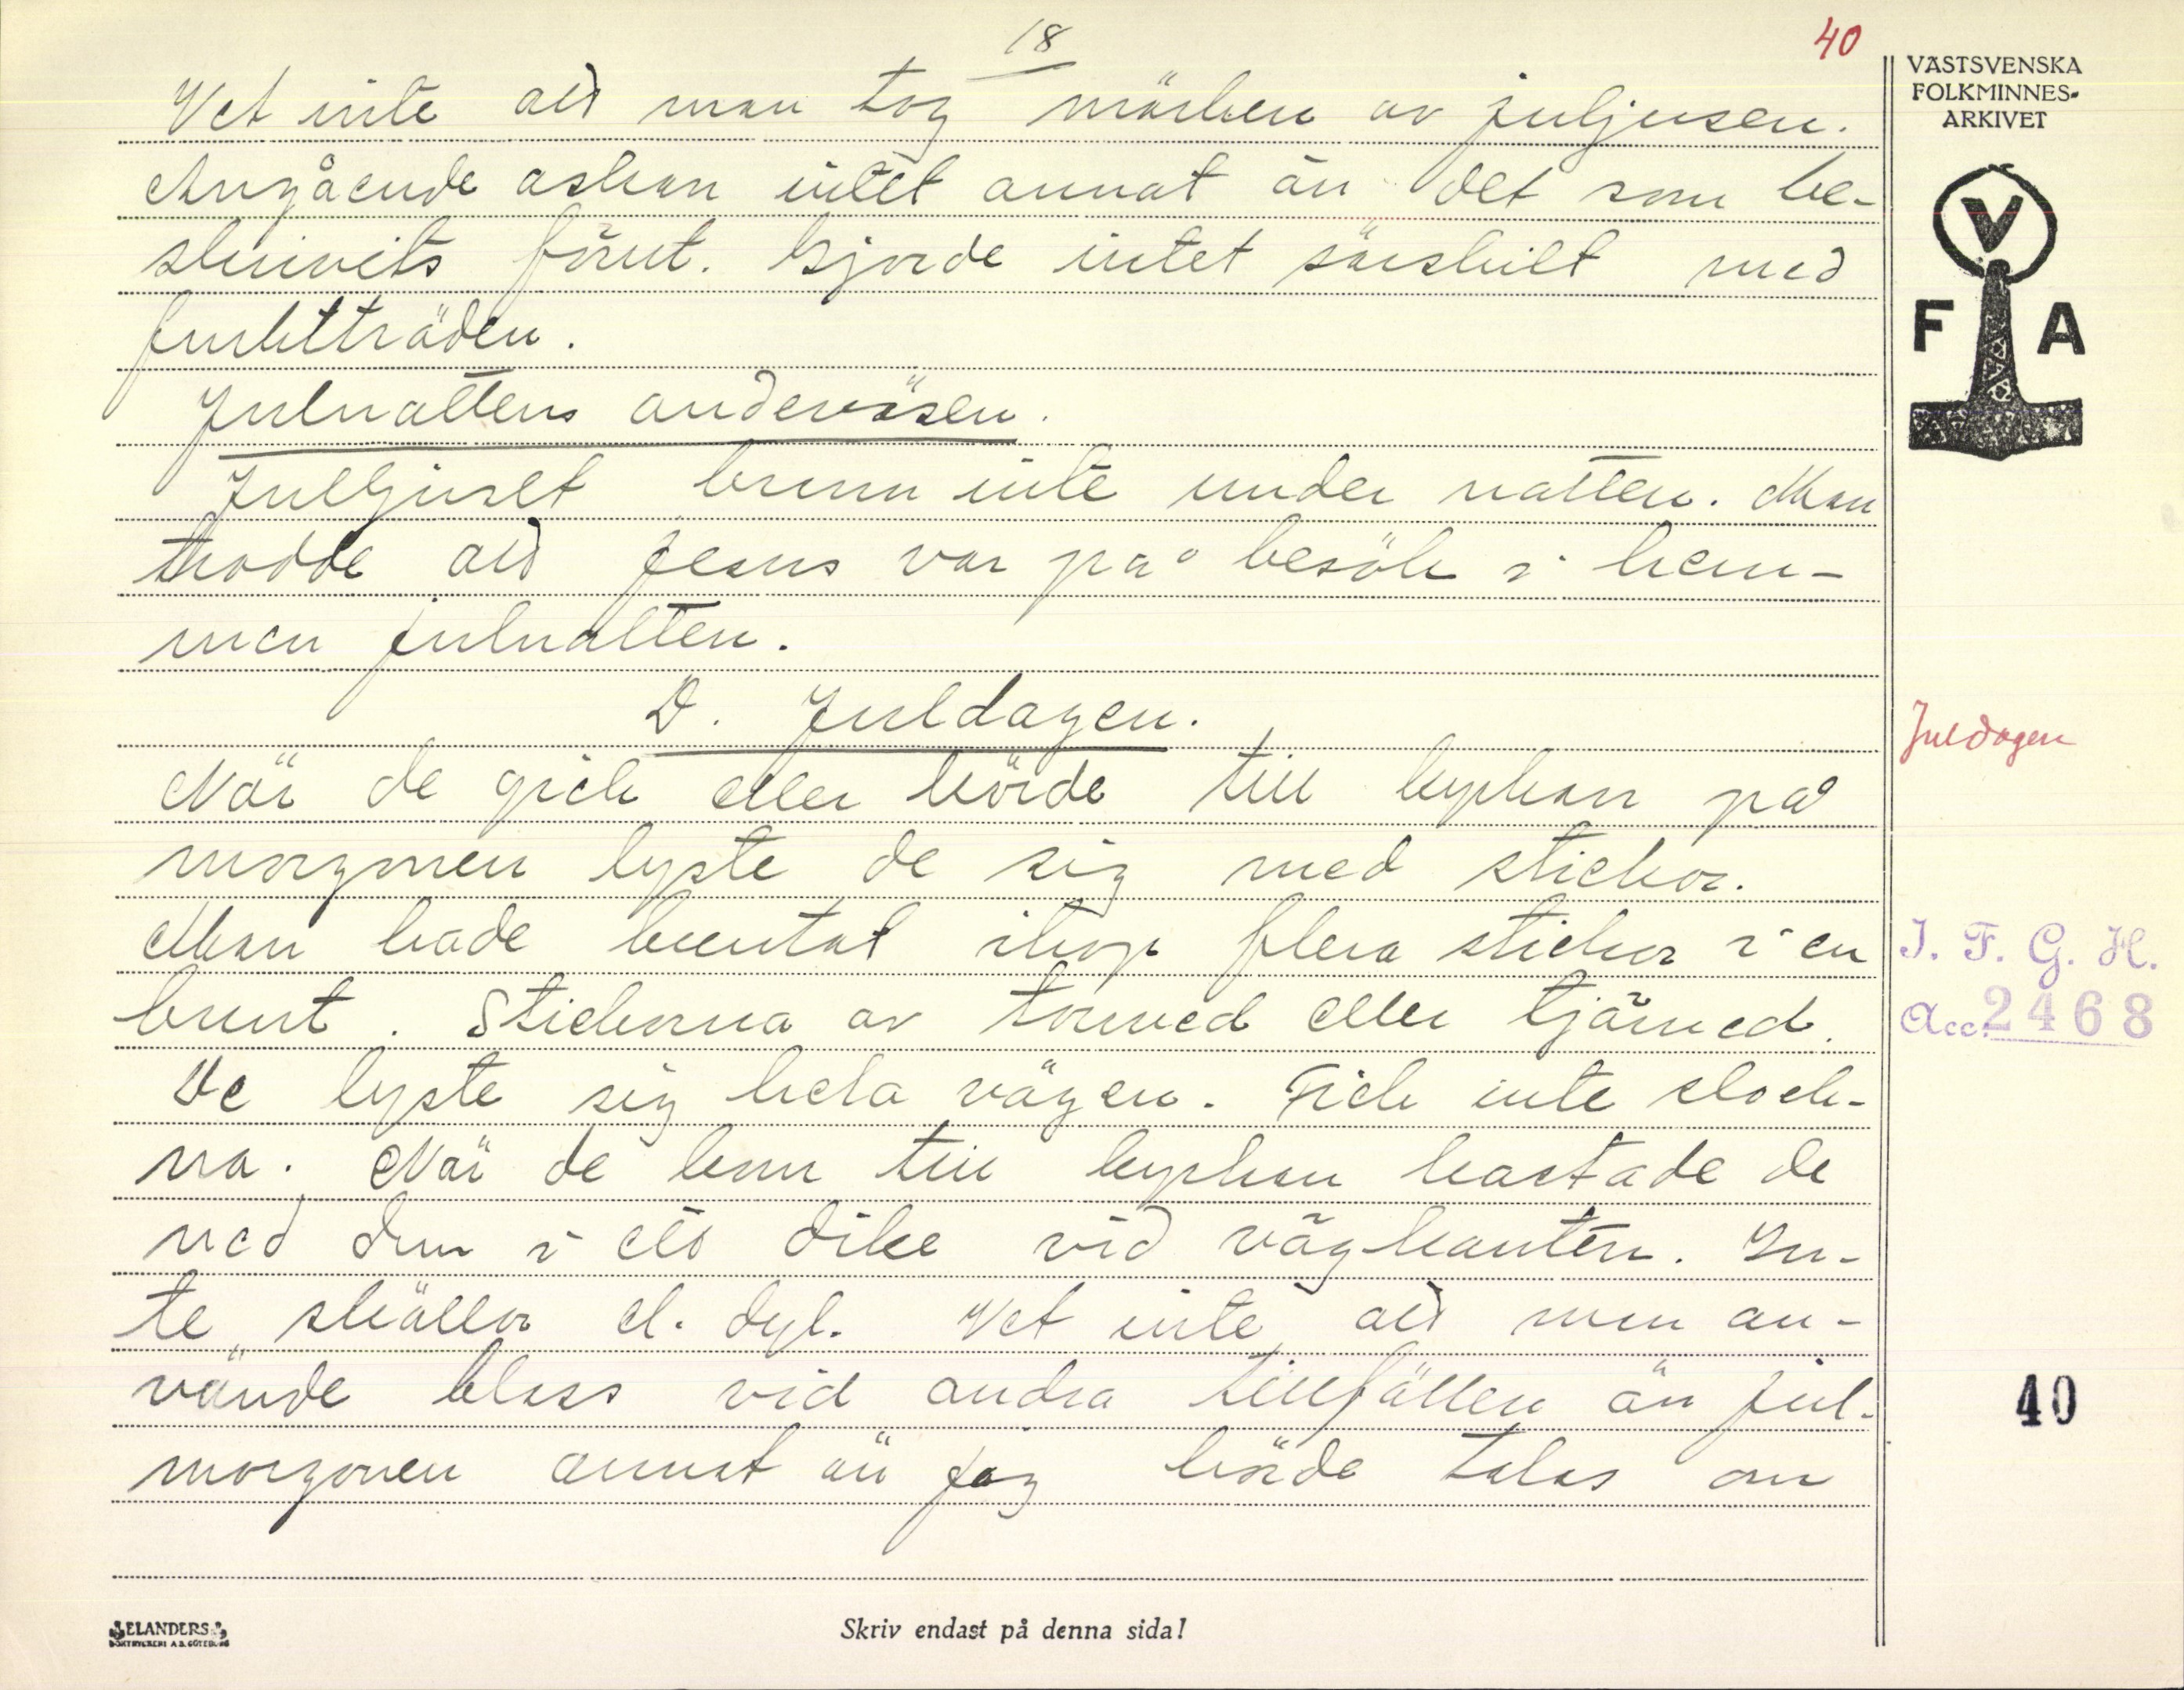 18
40
Vet inte att man tog märken av juljusen.
Angående askan intet annat än det som be-
skrivits förut. Gjorde intet särskilt med
fruktträden.
Julnattens andeväsen.
Julljuset brann inte under natten. Man
trodde att Jesus var på besök i hem-
men julnatten.
D. Juldagen.
När de gick eller körde till kyrkan på
morgonen lyste de sig med stickor.
Man hade buntat ihop flera stickor i en
bunt. Stickorna av torrved eller tjärved.
De lyste sig hela vägen. Fick inte slock-
na. När de kom till kyrkan kastade de
ned dem i ett dike vid vägkanten. In-
te skällor el. dyl. Vet inte att man an-
vände bloss vid andra tillfällen än jul-
morgonen annat än jag hörde talas om
VÄSTSVENSKA
FOLKMINNES-
ARKIVET
V
F A
Juldagen
I. F. G. H.
Acc. 2468
40
ELANDERS
BOKTRYCKERI A.B. GÖTEBORG
Skriv endast på denna sida!